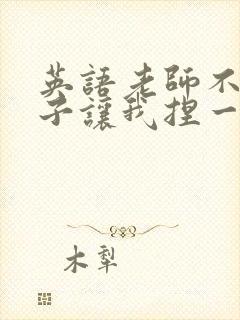 英語老師不
子讓我捏一
木犁